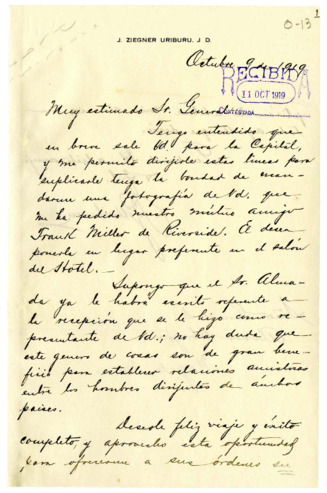 O-13
1
J. ZIEGNER URIBURU, J. D.
Octubre 9 de 1919
RECIBIDA
11 OCT 1919
CONTESTADA
Muy estimado Sr. General:
Tengo entendido que
en breve sale Ud para la Capital,
y me permito dirijirle estas lineas para
suplicarle tenga la bondad de man-
darme una fotografía de Ud. que
me ha pedido nuestro mútuo amigo
Frank Miller de Riverside. El desea
ponerla en lugar preferente en el salón
del Hotel.—
Supongo que el Sr. Alma-
da ya le habrá escrito referente a
la recepción que se le hizo como re-
presentante de Ud.; no hay duda que
este genero de cosas son de gran bene-
ficio para establecer relaciones amistosas
entre los hombres dirijentes de ámbos
países.
Desole feliz viaje y éxito
completo, y aprovecho esta oportunidad
para ofrecerme a sus órdenes su